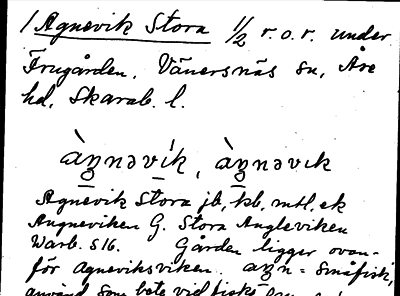 1 Agnevik Stora 1/2 r. o. r. under
Frugården, Vänersnäs sn, Åse
hd, Skarab. l.
àŋnəvík, àŋnəvık
Agnevik Stora jb, kb, mtl, ek
Angneviken G. Stora Angleviken
Warb. S16. Gården ligger ovan-
för Agneviksviken. aŋn = småfisk,
använd som bete vid fiske